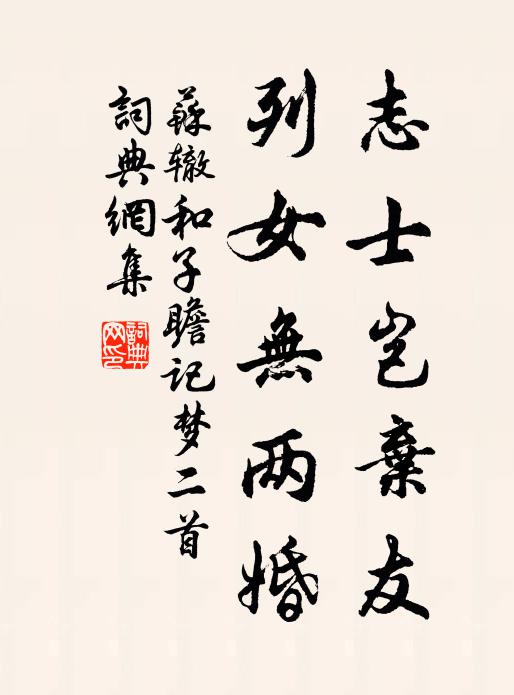 志士岂棄友
列女無两婚
蘇辙和子瞻记梦二首
詞典網集
詞典网印